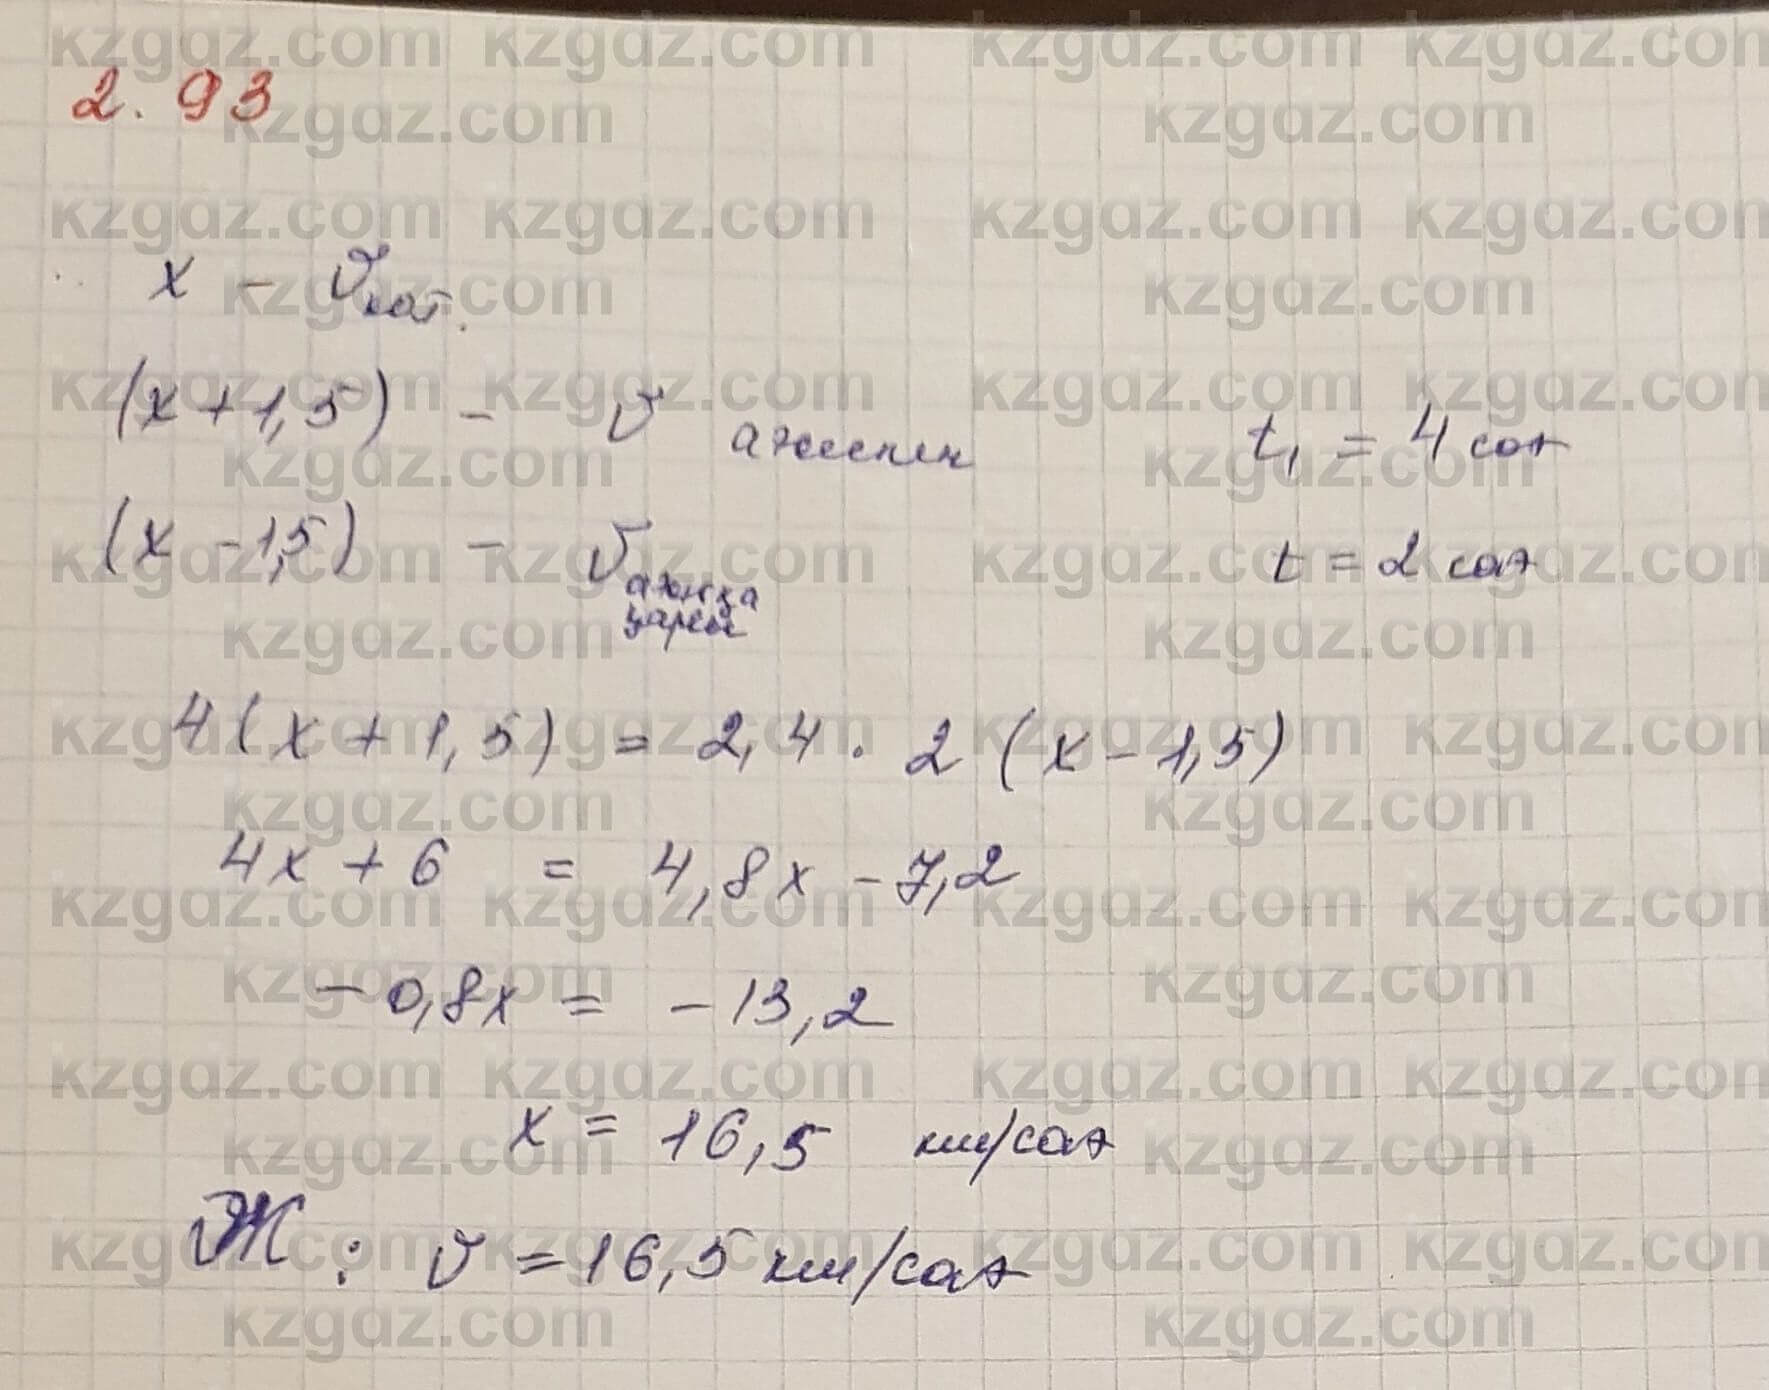 2.93
x - V кат.
(x+1,5) - V ағыспен
t₁ = 4 сағ
(x-1,5) - V ағысқа қарсы
t = 2 сағ
4(x+1,5) = 2,4 · 2(x-1,5)
4x+6 = 4,8x-7,2
-0,8x = -13,2
x = 16,5 км/сағ
Ж: V = 16,5 км/сағ
kzgdz.com